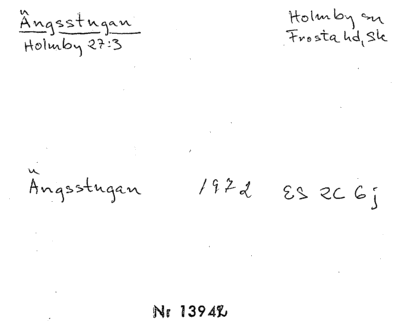 Ängsstugan
Holmby 27:3
Holmby sn
Frosta hd, Sk
Ängsstugan 1972 ES 2C 6j
Nr 13942